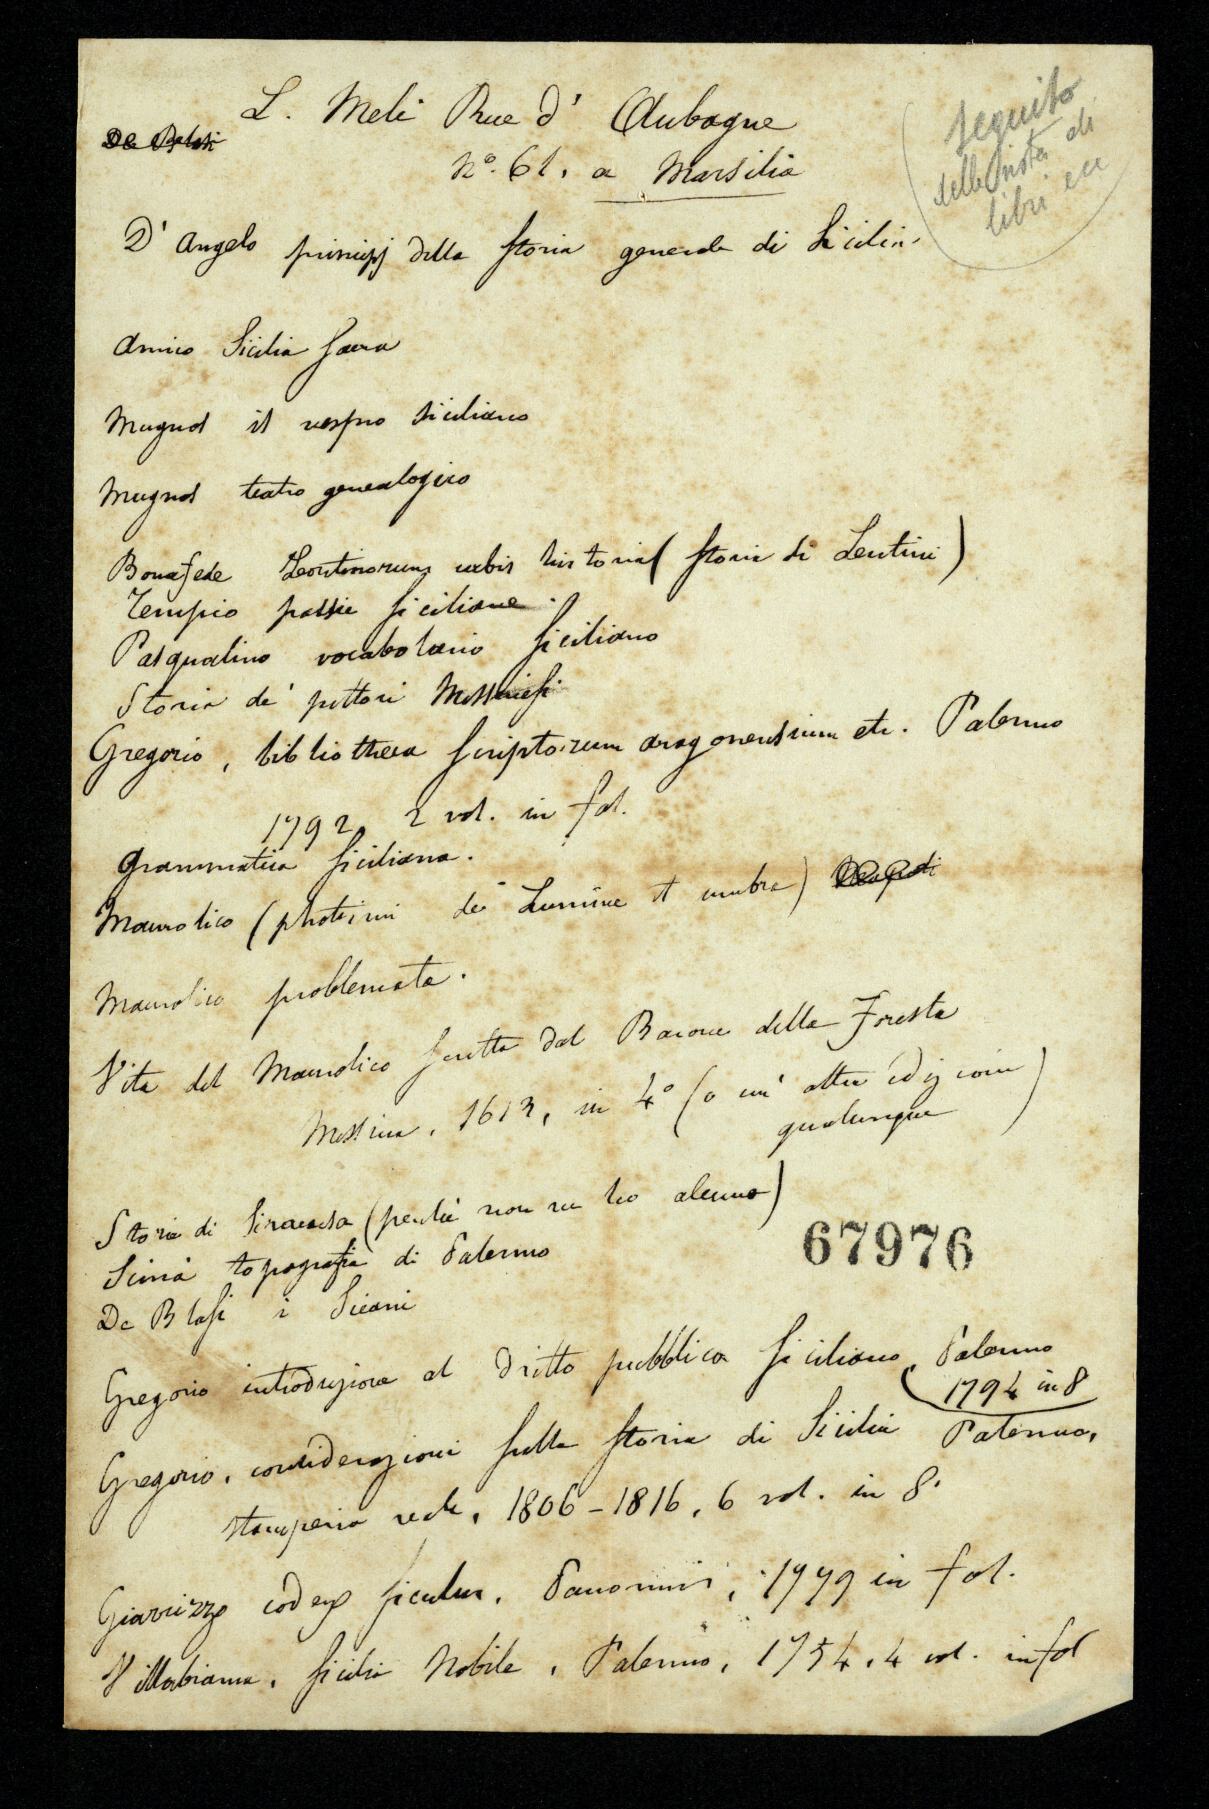 L. Meli Rue d' Aubagne
De Blasi
No. 61. a Marsilia
seguito
della nota di
libri
D' Angelo principj della storia generale di Sicilia.
Amico Sicilia Sacra
Mugnos il vespro siciliano
Mugnos teatro genealogico
Bonafede Leontinorum urbis historia (storia di Lentini)
Tempio possie siciliane.
Pasqualino vocabolario siciliano
Storia de' pittori Messinesi
Gregorio, bibliotheca scriptorum aragonensium etc. Palermo
1792, 2 vol. in fol.
Grammatica siciliana.
Maurolico (photismi de Lumine et umbra)
Maurolico problemata.
Vita del Maurolico scritta dal Barone della Foresta
Messina, 1613, in 4° (o un' altra edizione
qualunque)
Storia di Siracusa (perchè non ne ho alcuna)
Scinà topografia di Palermo
De Blasi i Sicani
Gregorio introduzione al dritto pubblico siciliano, Palermo
1794 in 8
Gregorio, considerazioni sulla storia di Sicilia Palermo,
stamperia reale, 1806-1816, 6 vol. in 8.
67976
Giarrizzo codex siculus, Panormi, 1779 in fol.
Villabianca, Sicilia Nobile, Palermo, 1754, 4 vol. in fol